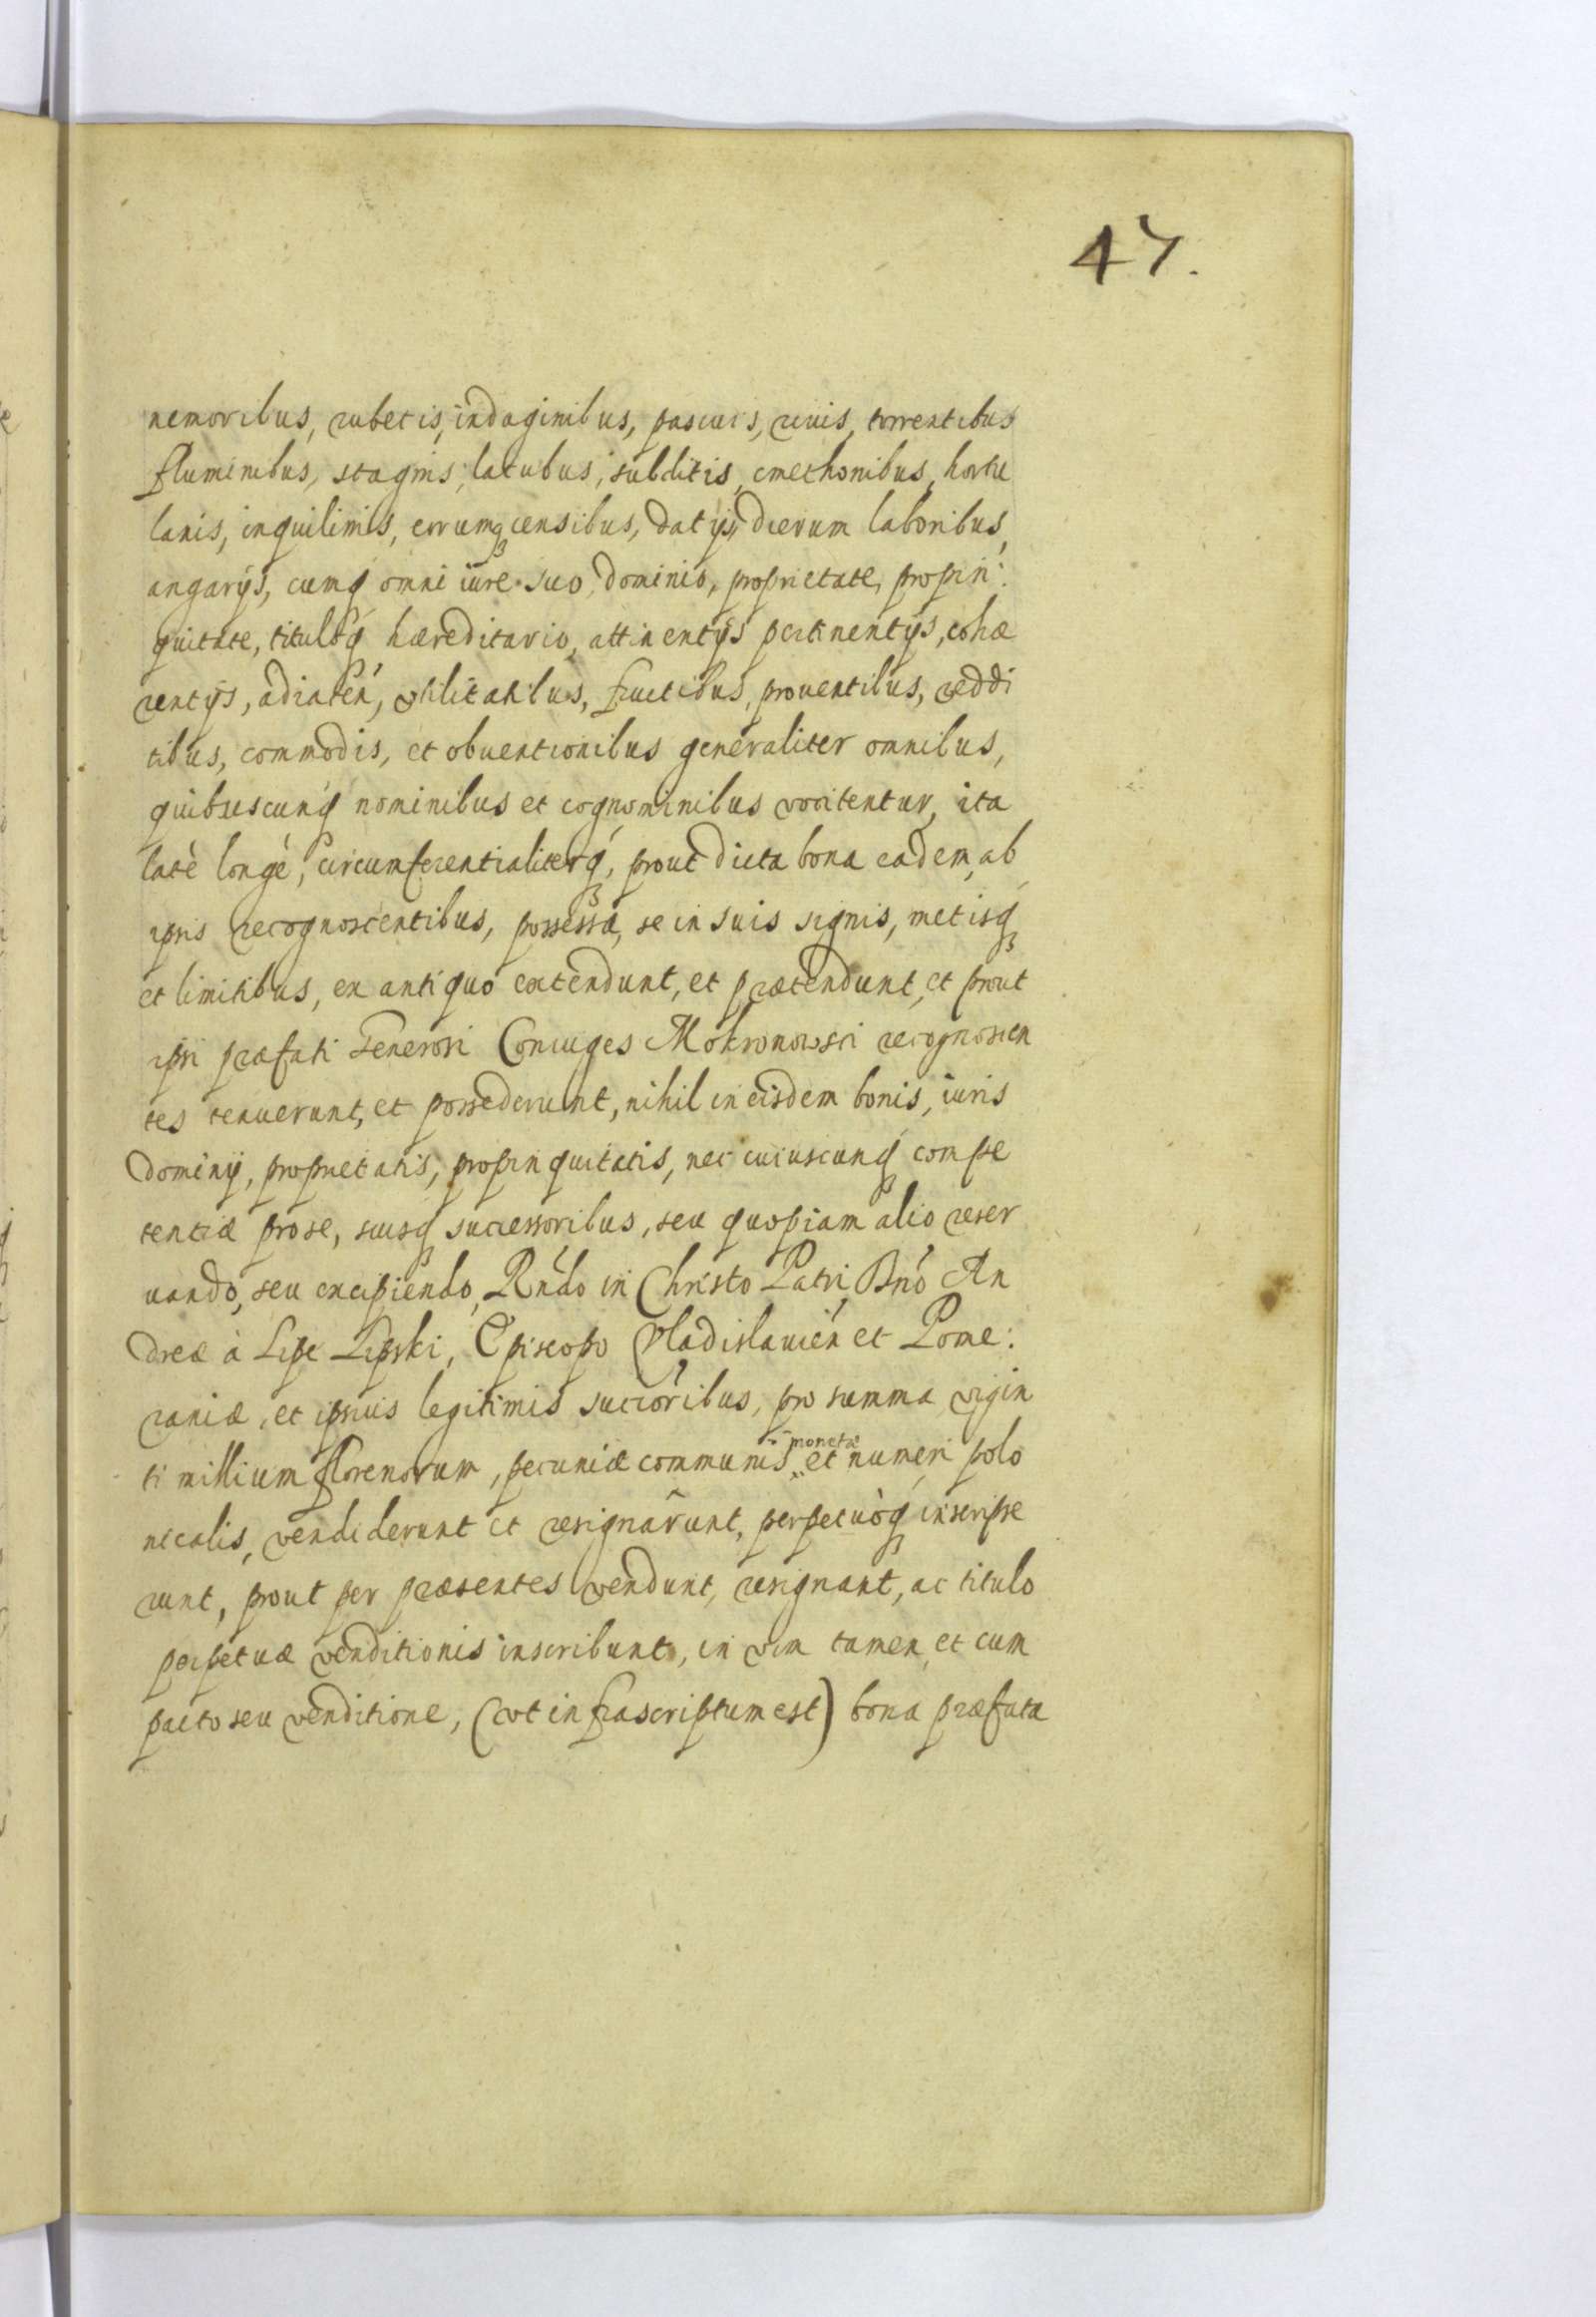 47.
nemoribus, rubetis, indaginibus, pascuis, riuis, torrentibus
fluminibus, stagnis, lacubus, subditis, cmethonibus, hortu
lanis, inquilinis, eorumq censibus, datijs, dierum laboribus,
angarijs, cumq omni iure suo, dominio, proprietate, propin:
quitate, tituloq hæreditario, attinentijs pertinentijs, cohæ
rentijs, adiacen, vtilitatibus, fructibus, prouentibus, reddi
tibus, commodis, et obuentionibus generaliter omnibus,
quibuscunq nominibus et cognominibus vocitentur, ita
latè longè, circumferentialiterq, prout dicta bona eadem, ab
ipsis recognoscentibus, possessa, se in suis signis, metisq
et limitibus, ex antiquo extendunt, et prætendunt, et prout
ipsi præfati Generosi Coniuges Mokronowsci recognoscen
tes tenuerunt, et possederunt, nihil in eisdem bonis, iuris
dominij, proprietatis, propinquitatis, nec cuiuscunq compe
tentiæ pro se, suisq successoribus, seu quopiam alio reser
uando, seu excipiendo, Rndo in Christo Patri Dno An
dreæ à Lipe Lipski, Episcopo Vladislauien et Pome:
raniæ, et ipsius legitimis succoribus, pro summa vigin
ti millium florenorum, pecuniæ communis monetæ et numeri polo
nicalis, vendiderunt et resignârunt, perpetuòq inscripse
runt, prout per præsentes vendunt, resignant, ac titulo
perpetuæ venditionis inscribunt, in vim tamen, et cum
pacto seu venditione, (vt infrascriptum est) bona præfata